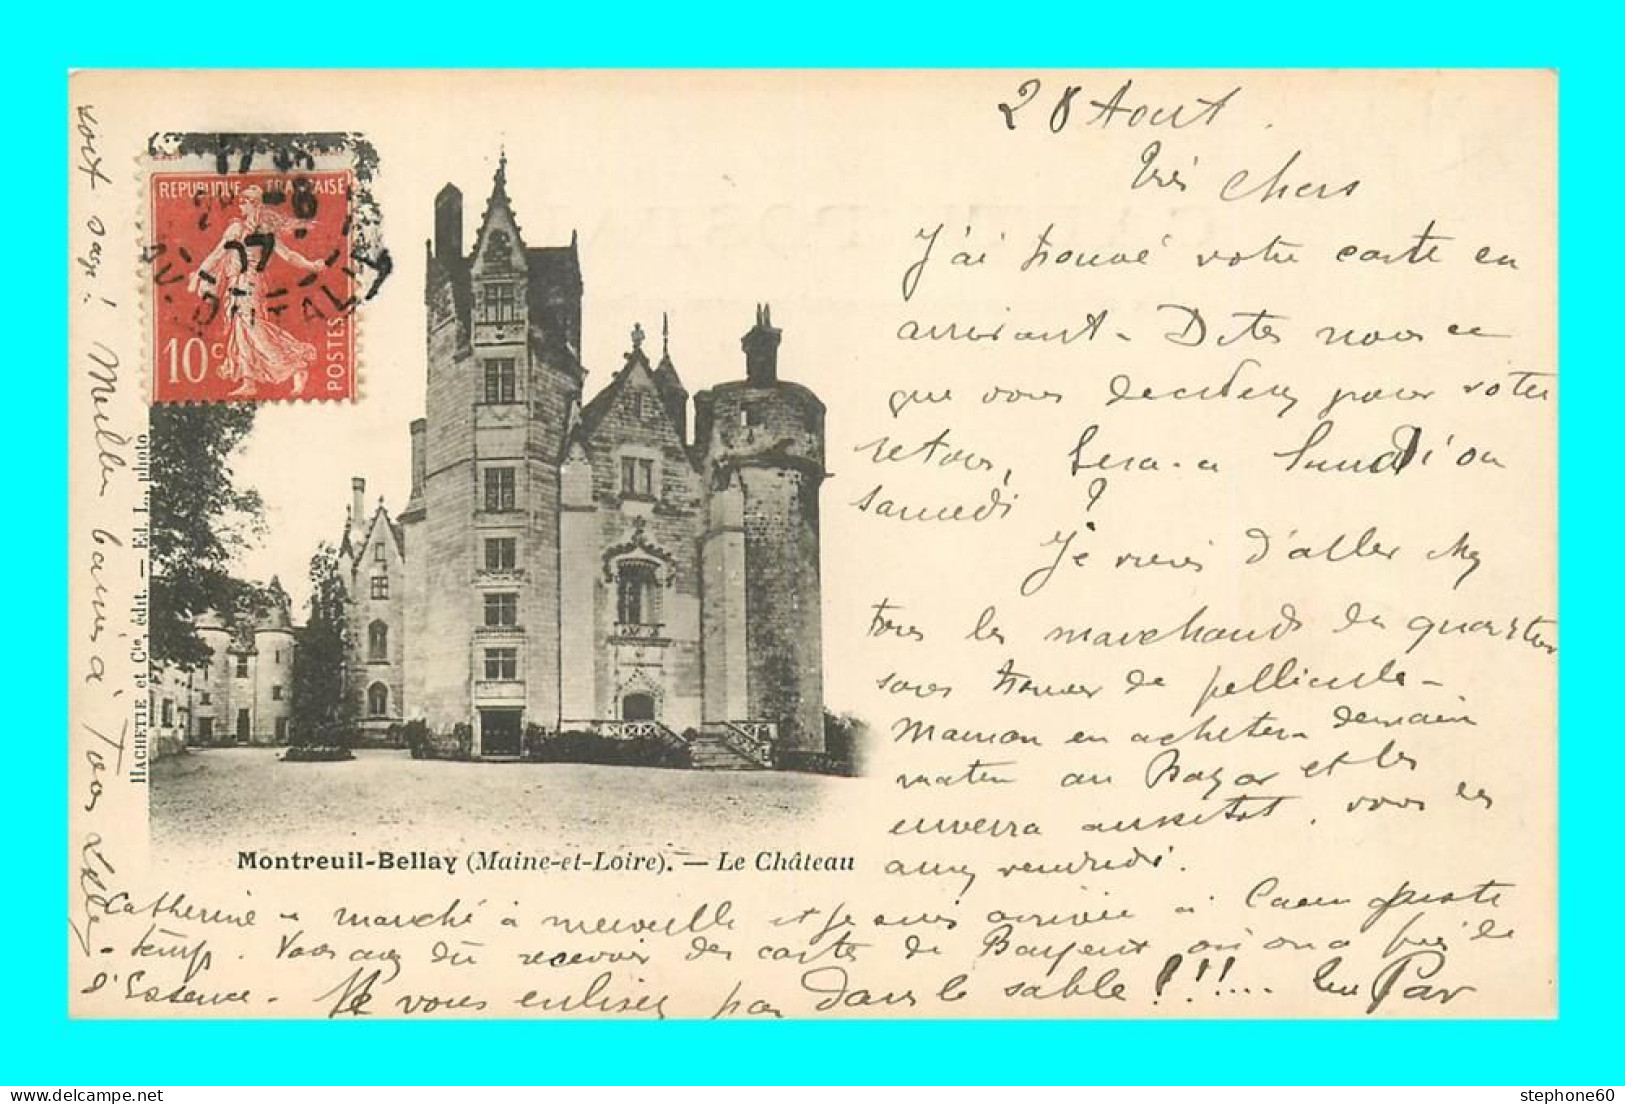 28 Aout.
Très chers
J'ai trouvé votre carte en
arrivant - Dites nous ce
que vous decidez pour votre
retour, Sera-ce lundi ou
samedi ?
Je viens d'aller chez
tous les marchands du quartier
sans trouver de pellicule -
Maman en achetera demain
matin au Bazar et les
enverra aussitot. vous les
aurez vendredi.
Catherine a marché à merveille et je suis arrivée à Caen juste
- temps. Vous avez dû recevoir des cartes de où on a pris de
l'Essence - Ne vous enlisez pas dans le sable !!!!....
soit sage ! Meilleurs baisers à Tous
REPUBLIQUE FRANÇAISE
10c POSTES
17
HACHETTE et Cie, édit. — Ed. L., photo
Montreuil-Bellay (Maine-et-Loire). — Le Château
stephone60